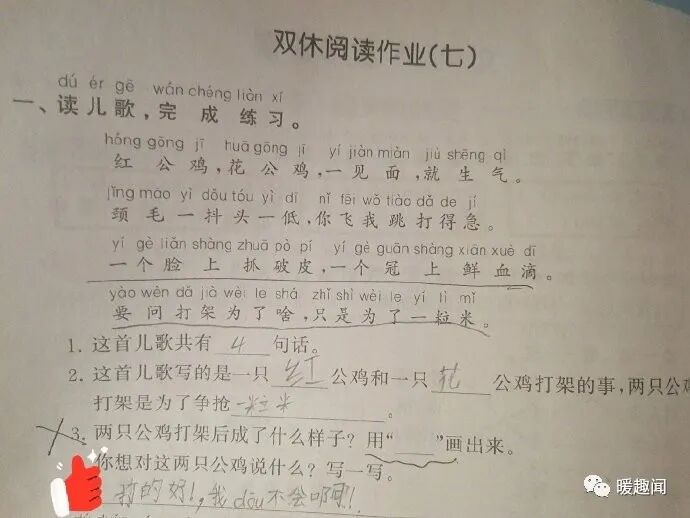 双休阅读作业(七)
dú ér gē wán chéng liàn xí
一、读儿歌，完成练习。
hóng gōng jī huā gōng jī yí jiàn miàn jiù shēng qì
红公鸡，花公鸡，一见面，就生气。
jǐng máo yì dǒu tóu yì dī nǐ fēi wǒ tiào dǎ de jí
颈毛一抖头一低，你飞我跳打得急。
yí gè liǎn shàng zhuā pò pí yí gè guān shàng xiān xuè dī
一个脸上抓破皮，一个冠上鲜血滴。
yào wèn dǎ jià wèi le shá zhǐ shì wèi le yí lì mǐ
要问打架为了啥，只是为了一粒米。
1. 这首儿歌共有 4 句话。
2. 这首儿歌写的是一只 红 公鸡和一只 花 公鸡打架的事，两只公鸡
打架是为了争抢 一粒米 。
3. 两只公鸡打架后成了什么样子？用“____”画出来。
你想对这两只公鸡说什么？写一写。
打的好！，我dōu不会
暖趣闻